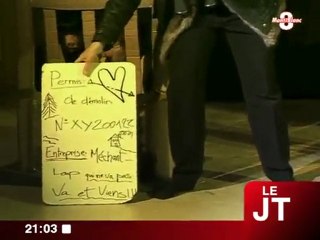 8
MontBlanc
Permis
de démolir
N° XY200122
Entreprise Méchant
Loup qui ne va pas
Va et Viens!!!
LE
JT
21:03